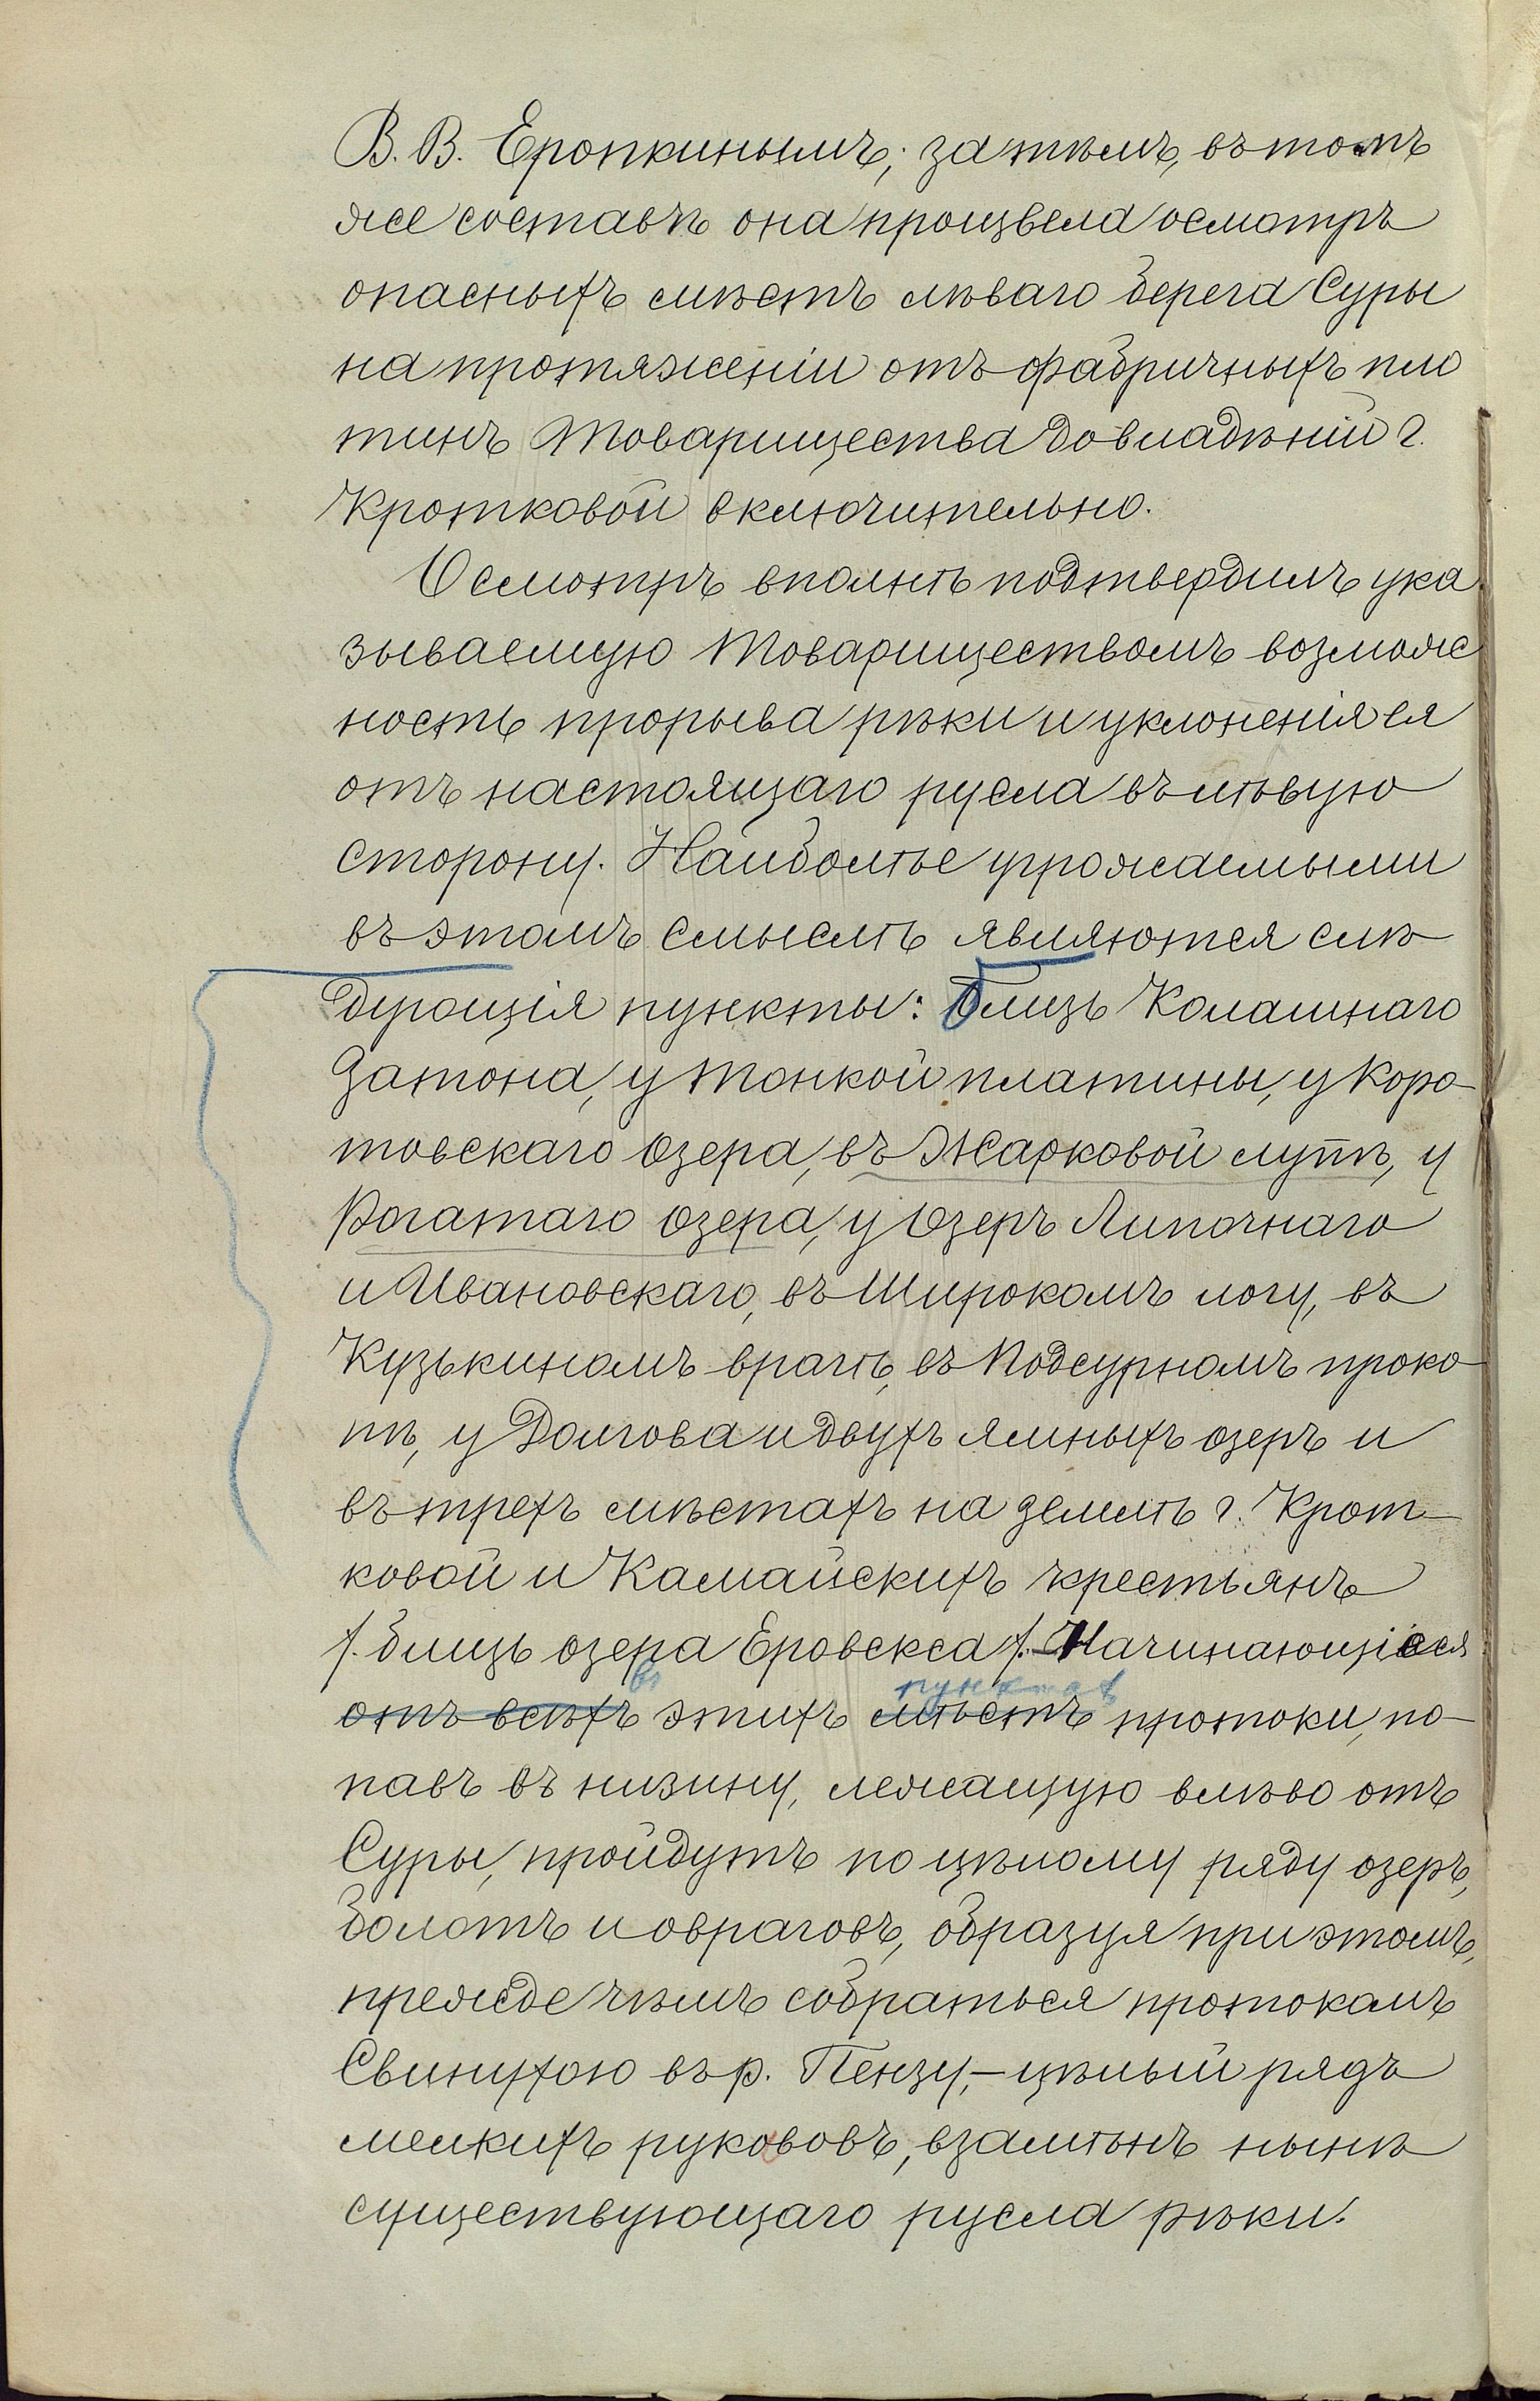 В. В. Еропкинымъ; затѣмъ, въ томъ
же составѣ она произвела осмотръ
опасныхъ мѣстъ лѣваго берега Суры
на протяженіи отъ фабричныхъ пло
тинъ Товарищества до владѣній г.
Кротковой включительно.
Осмотръ вполнѣ подтвердилъ ука
зываемую Товариществомъ возмож
ность прорыва рѣки и уклоненія ея
отъ настоящаго русла въ лѣвую
сторону. Наиболѣе угрожаемыми
въ этомъ смыслѣ являются слѣ-
дующія пункты: близь Колашнаго
Затона, у Тонкой платины, у Коро-
товскаго Озера, въ Жарковой лупѣ, у
Рогатаго озера, у Озеръ Липочнаго
и Ивановскаго, въ Широкомъ логу, въ
Кузькиномъ врагѣ, въ Подсурномъ проко-
пѣ, у Долгова и двухъ ямныхъ озеръ и
въ трехъ мѣстахъ на землѣ г. Крот-
ковой и Камайскихъ крестьянъ
/. близь озера Еровскса /. Начинающіяся
въ пунктахъ
отъ всѣхъ этихъ мѣстъ протоки, по-
павъ въ низину, лежащую влѣво отъ
Суры, пройдутъ по цѣлому ряду озеръ,
болотъ и овраговъ, образуя при этомъ,
прежде чѣмъ собраться протокамъ
Свинухою въ р. Пензу,- цѣлый рядъ
мелкихъ рукововъ, взамѣнъ нынѣ
существующаго русла рѣки.